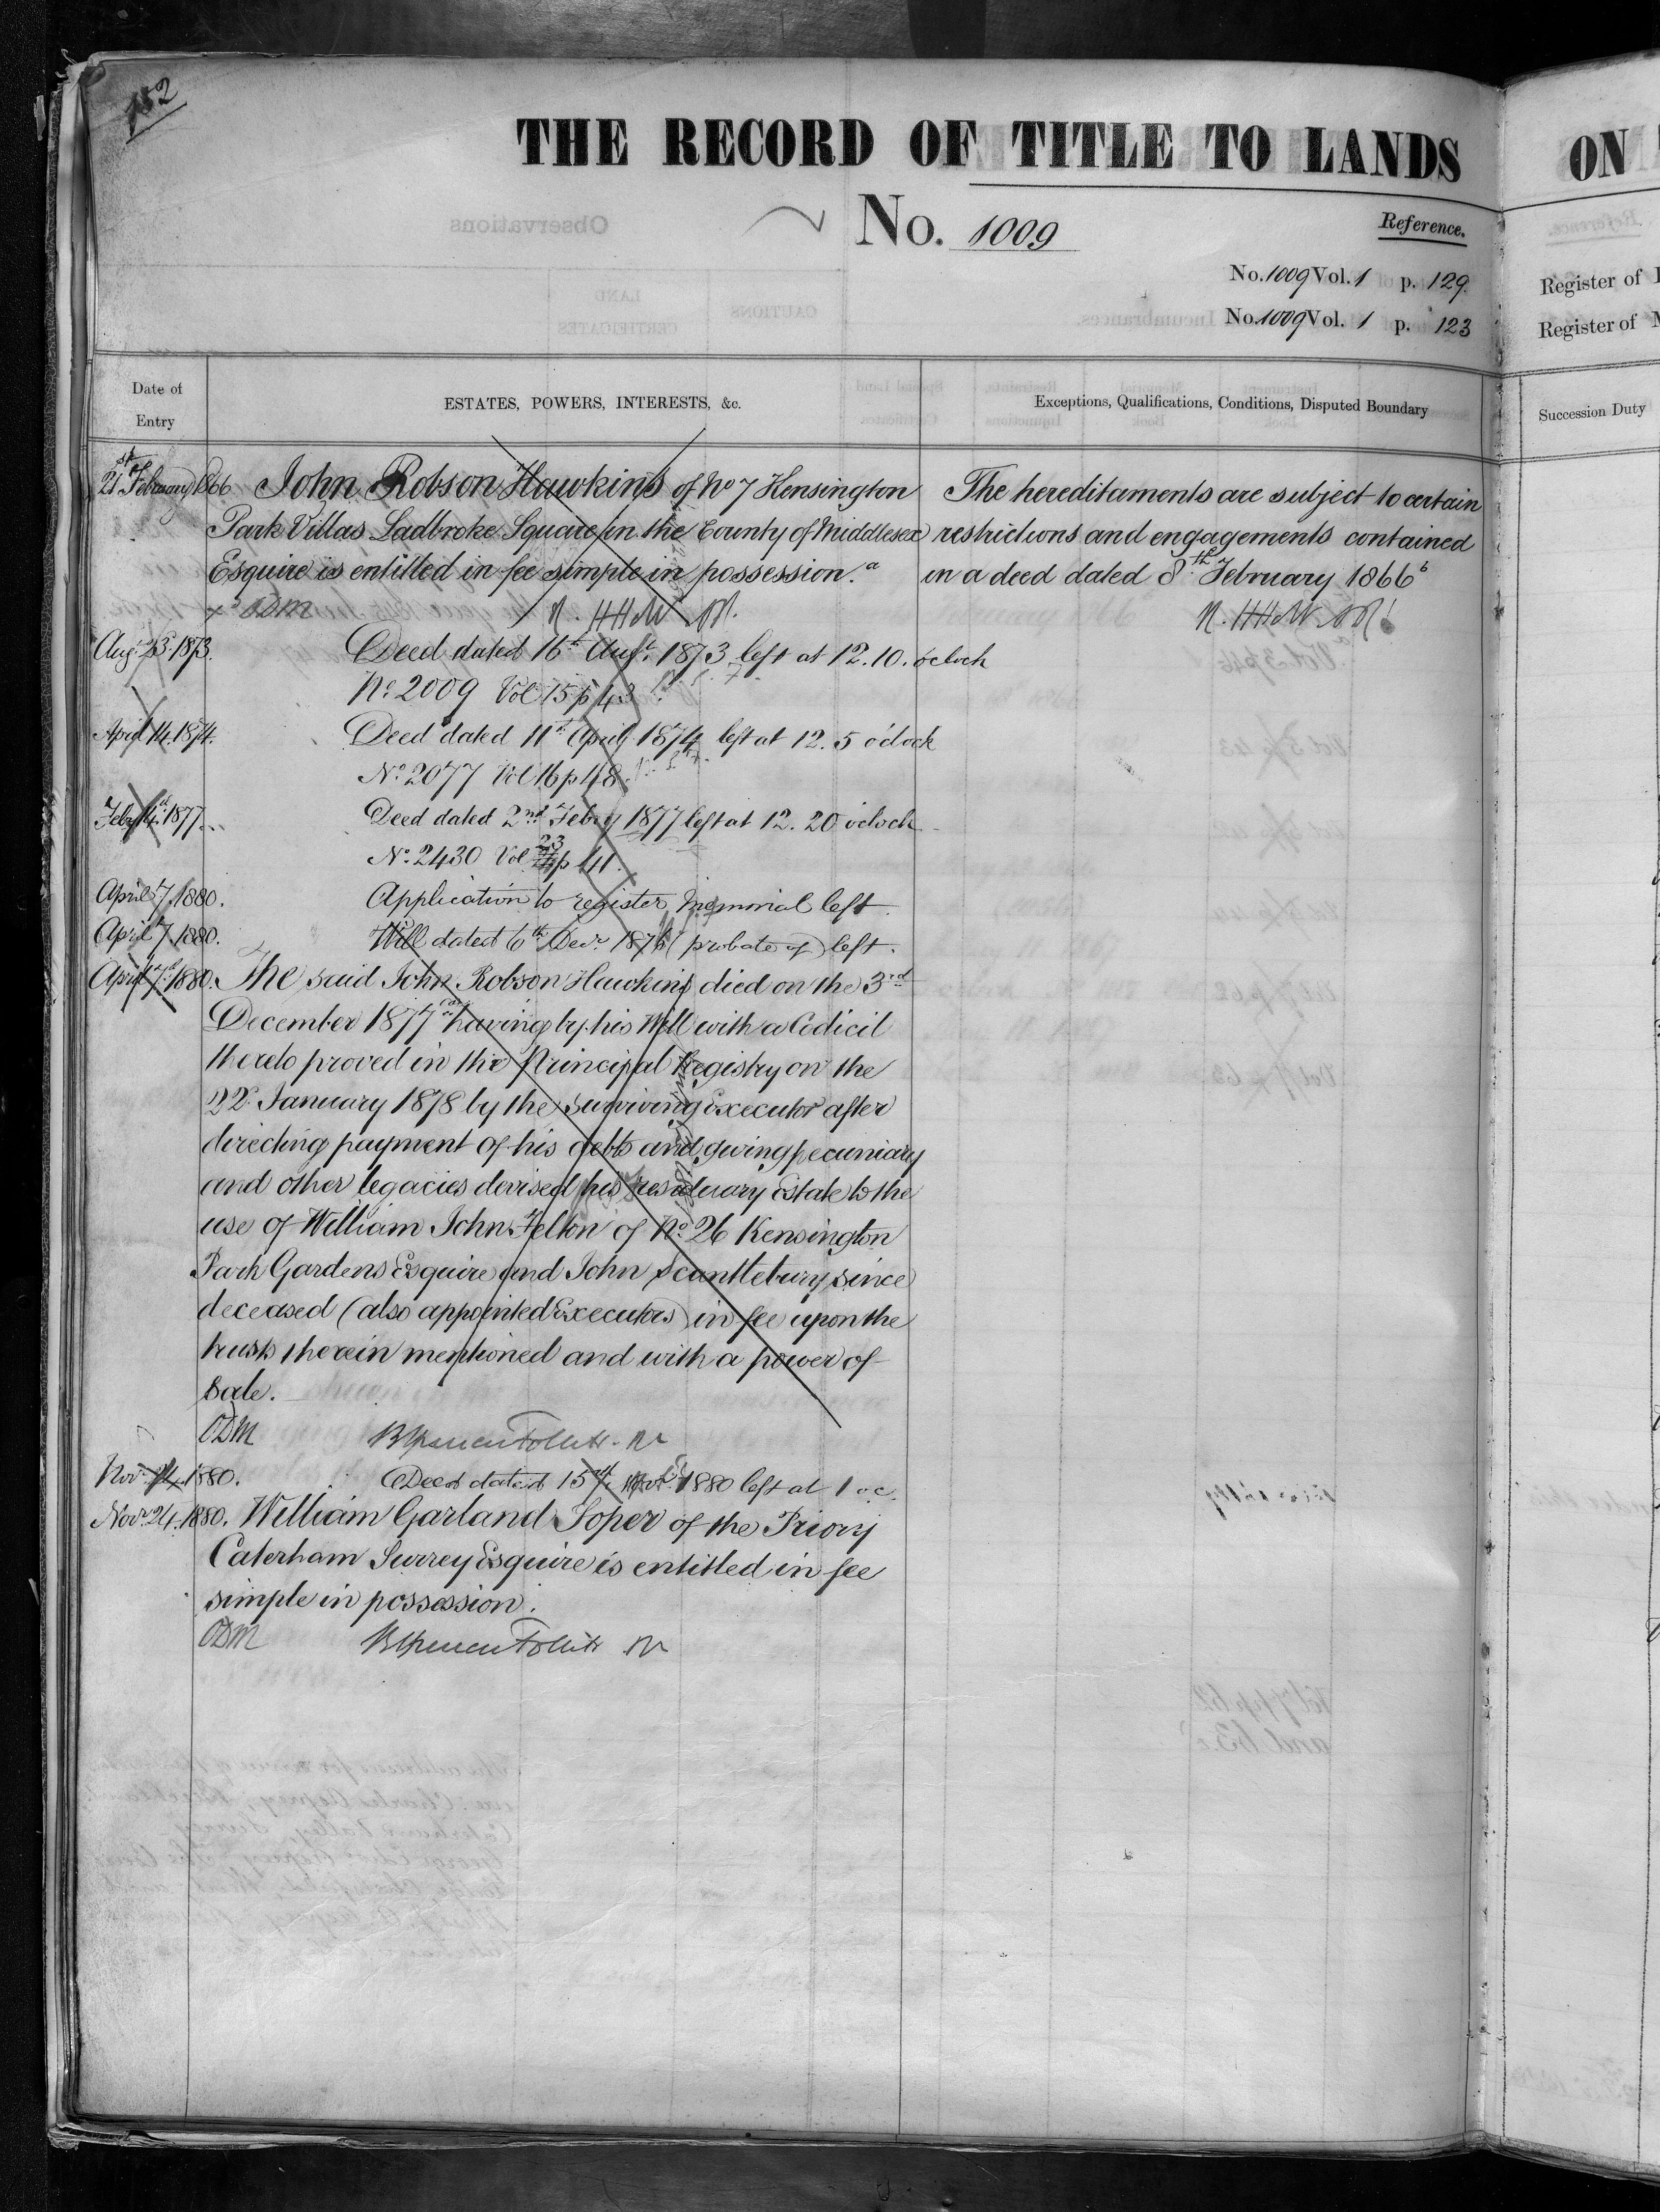 152
THE RECORD OF TITLE TO LANDS
No. 1009
Reference.
No. 1009 Vol. 1 p. 129.
No. 1009 Vol. 1 p. 123
Date of Entry
ESTATES, POWERS, INTERESTS, &c.
Exceptions, Qualifications, Conditions, Disputed Boundary
21st February 1866 John Robson Hawkins of No 7 Kensington
Park Villas Ladbroke Square in the County of Middlesex
Esquire is entitled in fee simple in possession. a
ODM
The hereditaments are subject to certain
restrictions and engagements contained
in a deed dated 8th February 1866 b
Aug 23. 1873. Deed dated 16th Augt. 1873 left at 12.10. o'clock
No. 2009 Vol 15 p 43
April 14. 1874. Deed dated 11th April 1874 left at 12. 5 o'clock
No. 2077 Vol 16 p 48.
Feby 14. 1877. Deed dated 2nd Feby 1877 left at 12. 20 o'clock
No. 2430 Vol 23 p 41.
April 7. 1880. Application to register, memorial left.
April 7. 1880. Will dated 6th Decr. 1876 (probate of) left.
April 7. 1880. The said John Robson Hawkins died on the 3rd
December 1877 having by his Will with a Codicil
thereto proved in the Principal Registry on the
22 January 1878 by the surviving Executor after
directing payment of his debts and giving pecuniary
and other legacies devised his residuary Estate to the
use of William John Felton of No. 26 Kensington
Park Gardens Esquire and John Scantlebury since
deceased (also appointed Executors) in fee upon the
trusts therein mentioned and with a power of
Sale.
ODM
Novr. 1880. Deed dated 15th Novr. 1880 left at 1 oc.
Novr. 24. 1880. William Garland Soper of the Priory
Caterham Surrey Esquire is entitled in fee
simple in possession.
ODM
ON
Register of
Register of
Succession Duty